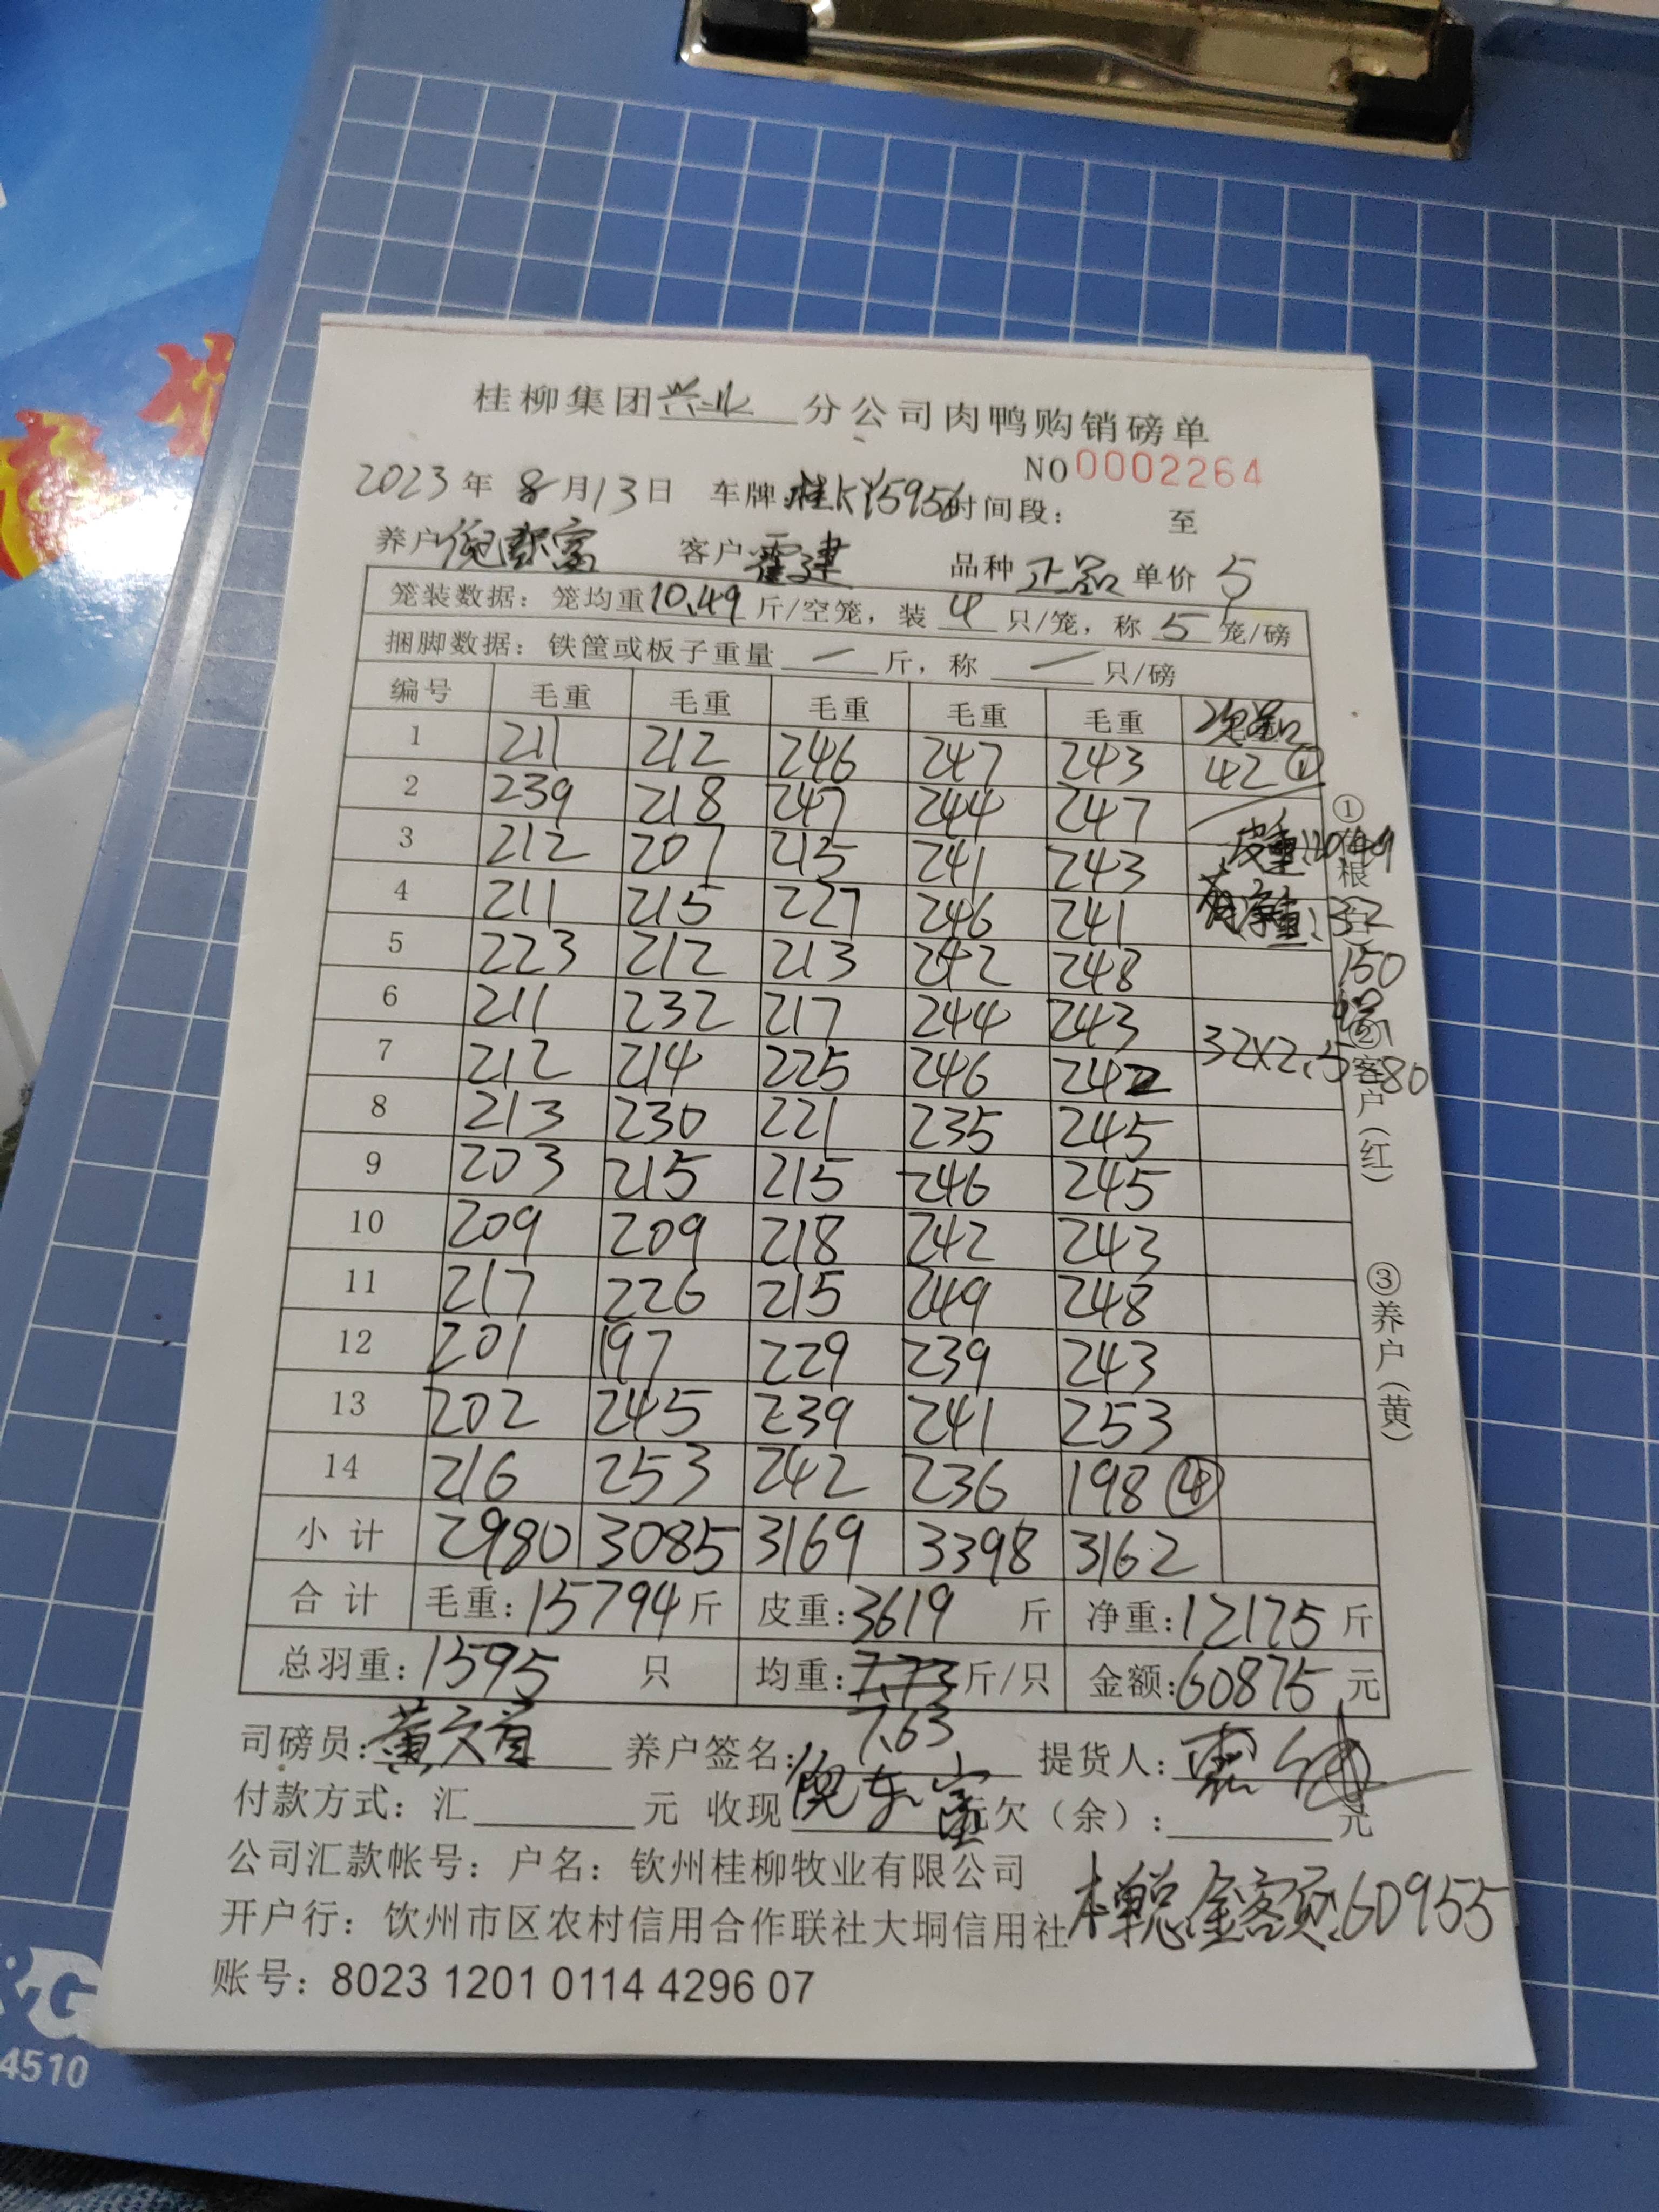 桂柳集团兴业分公司肉鸭购销磅单
NO 0002264
2023年8月13日 车牌:桂KY5956 时间段: 至
养户 客户 霍建 品种 正品 单价 5
笼装数据：笼均重10.49斤/空笼，装4只/笼，称5笼/磅
捆脚数据：铁筐或板子重量 — 斤，称 — 只/磅
编号 毛重 毛重 毛重 毛重 毛重 次品
1 211 212 246 247 243 42 ①
2 239 218 247 244 247
3 212 207 215 241 243 皮重:10.49
4 211 215 227 246 241 净重:32
5 223 212 213 242 248
6 211 232 217 244 243
7 212 214 225 246 242 32×2.5=80
8 213 230 221 235 245
9 203 215 215 246 245
10 209 209 218 242 243
11 217 226 215 249 248
12 201 197 229 239 243
13 202 245 239 241 253
14 216 253 242 236 198 ④
小计 2980 3085 3169 3398 3162
合计 毛重:15794斤 皮重:3619斤 净重:12175斤
总羽重:1595只 均重:7.73斤/只 金额:60875元
7.63
司磅员: 养户签名: 提货人:
付款方式：汇 元 收现 元欠（余）: 元
公司汇款帐号：户名：钦州桂柳牧业有限公司
开户行：饮州市区农村信用合作联社大垌信用社
本单总金额:60955
账号：8023 1201 0114 4296 07
150
②客户（红）
③养户（黄）
4510